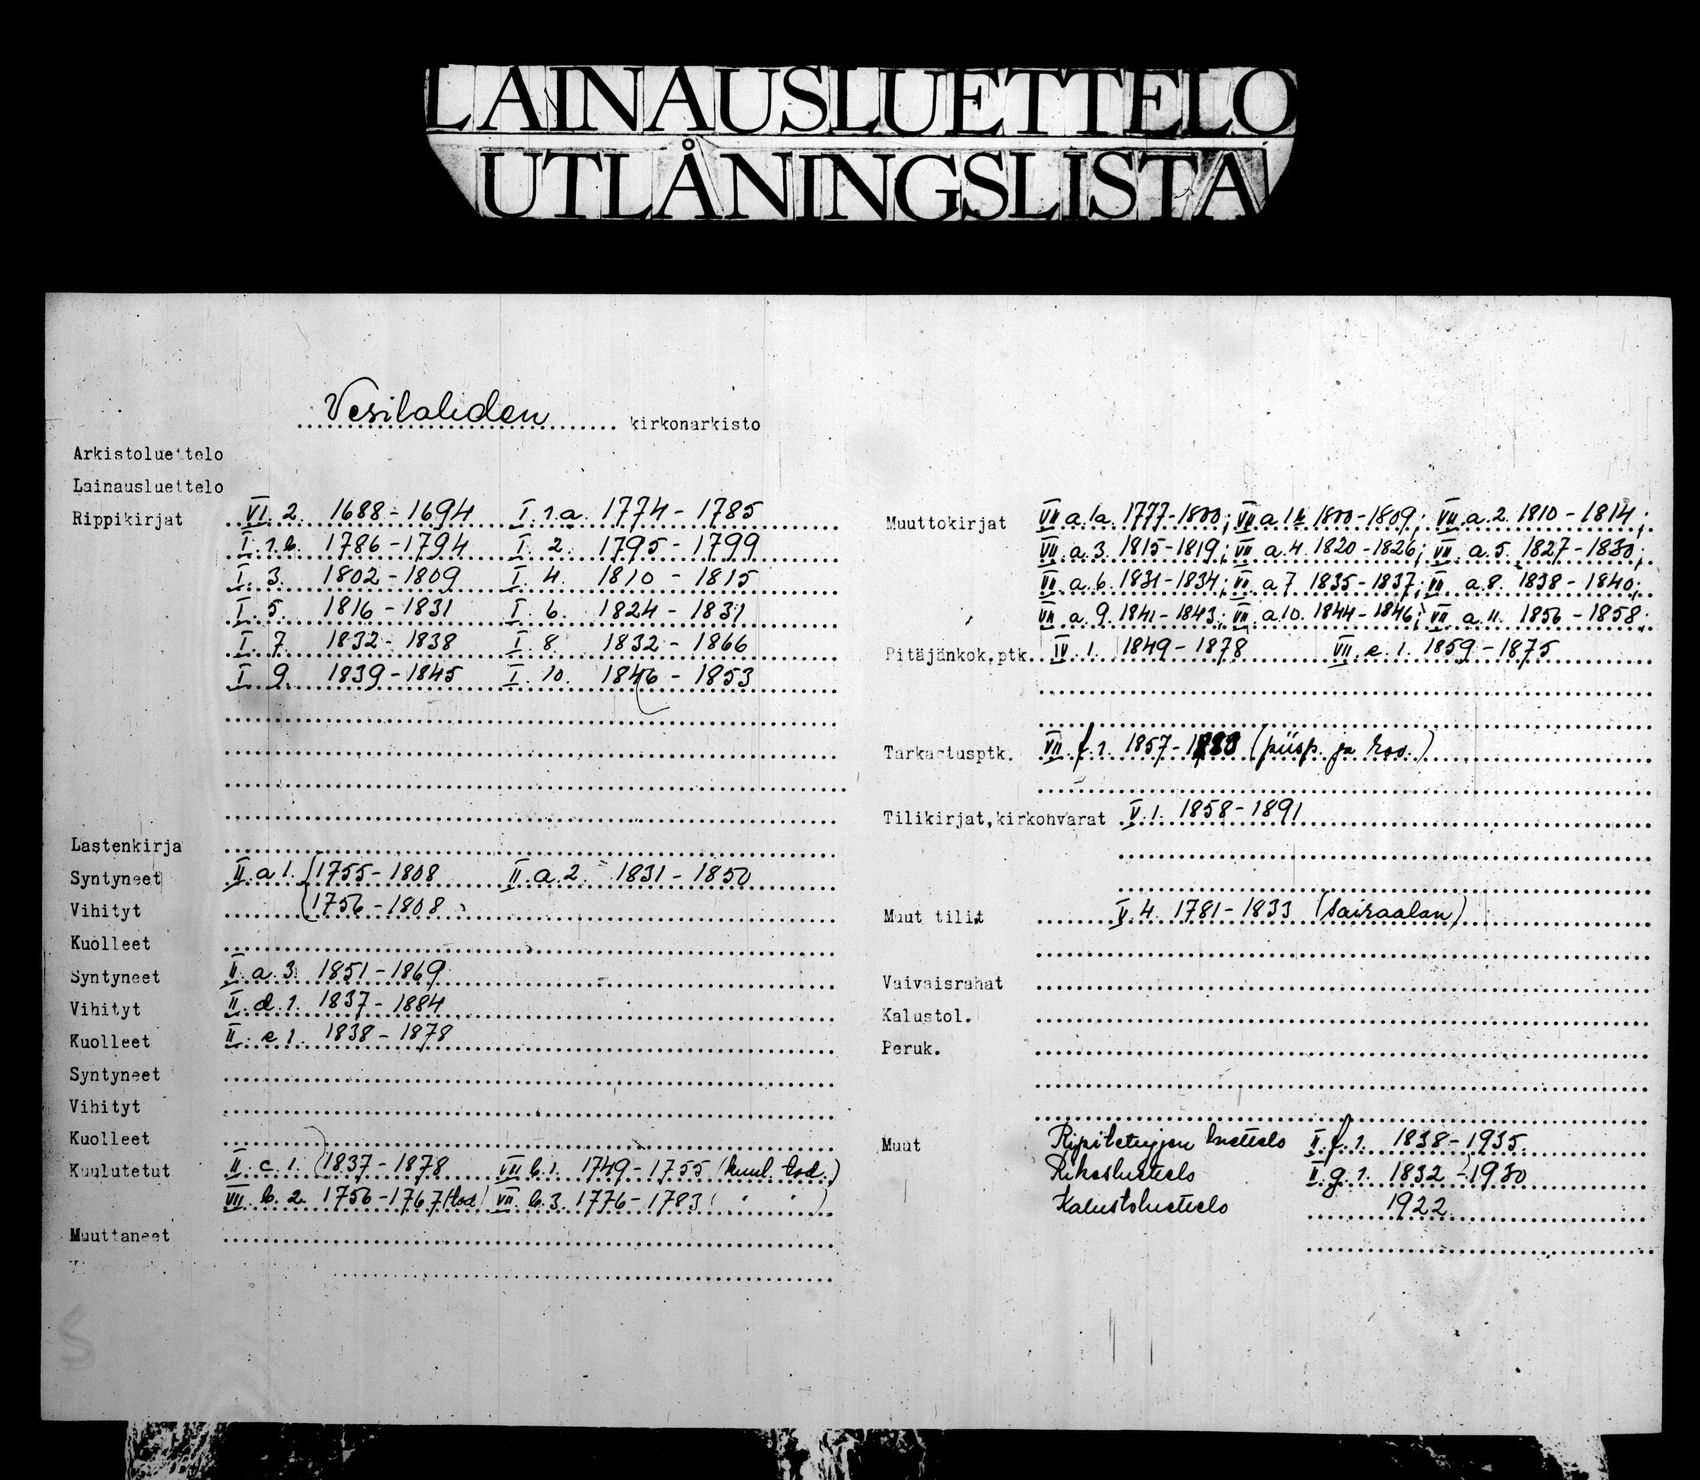 LAINAUSLUETTELO
UTLÅNINGSLISTA
Vesilahden kirkonarkisto
Arkistoluettelo
Lainausluettelo
Rippikirjat VI. 2. 1688-1694 I. 1.a. 1774-1785
I. 1.b. 1786-1794 I. 2. 1795-1799
I. 3. 1802-1809 I. 4. 1810-1815
I. 5. 1816-1831 I. 6. 1824-1831
I. 7. 1832-1838 I. 8. 1832-1866
I. 9. 1839-1845 I. 10. 1846-1853
Lastenkirja
Syntyneet II a 1. (1755-1808 II. a. 2. 1831-1850
Vihityt 1756-1808
Kuolleet
Syntyneet II. a. 3. 1851-1869
Vihityt II. d. 1. 1837-1884
Kuolleet II. e 1. 1838-1878
Syntyneet
Vihityt
Kuolleet
Kuulutetut II. c. 1. 1837-1878 VII b. 1. 1749-1755 (kuul. tod.)
VII. b. 2. 1756-1767 (tod. VII. b. 3. 1776-1783 ( " " )
Muuttaneet
Muuttokirjat VII a. 1a. 1777-1800; VII a 1b 1800-1809; VII. a. 2. 1810-1814;
VII. a. 3. 1815-1819; VII a. 4. 1820-1826; VII. a. 5. 1827-1830;
VII a. 6. 1831-1834; VII a 7 1835-1837; VII a. 8. 1838-1840;
VII a. 9. 1841-1843; VII a 10. 1844-1846; VII a. 11. 1856-1858;
Pitäjänkok.ptk. IV. 1. 1849-1878 VII. e. 1. 1859-1875
Tarkastusptk. VII. f. 1. 1857-1883 (piisp. ja rov.)
Tilikirjat,kirkonvarat V. 1. 1858-1891
Muut tilit V. 4. 1781-1833 (Sairaalan)
Vaivaisrahat
Kalustol.
Peruk.
Muut Ripiletujjen luettelo II. f. 1. 1838-1935
Rikosluettelo II. g. 1. 1832-1930
Kalustoluettelo 1922